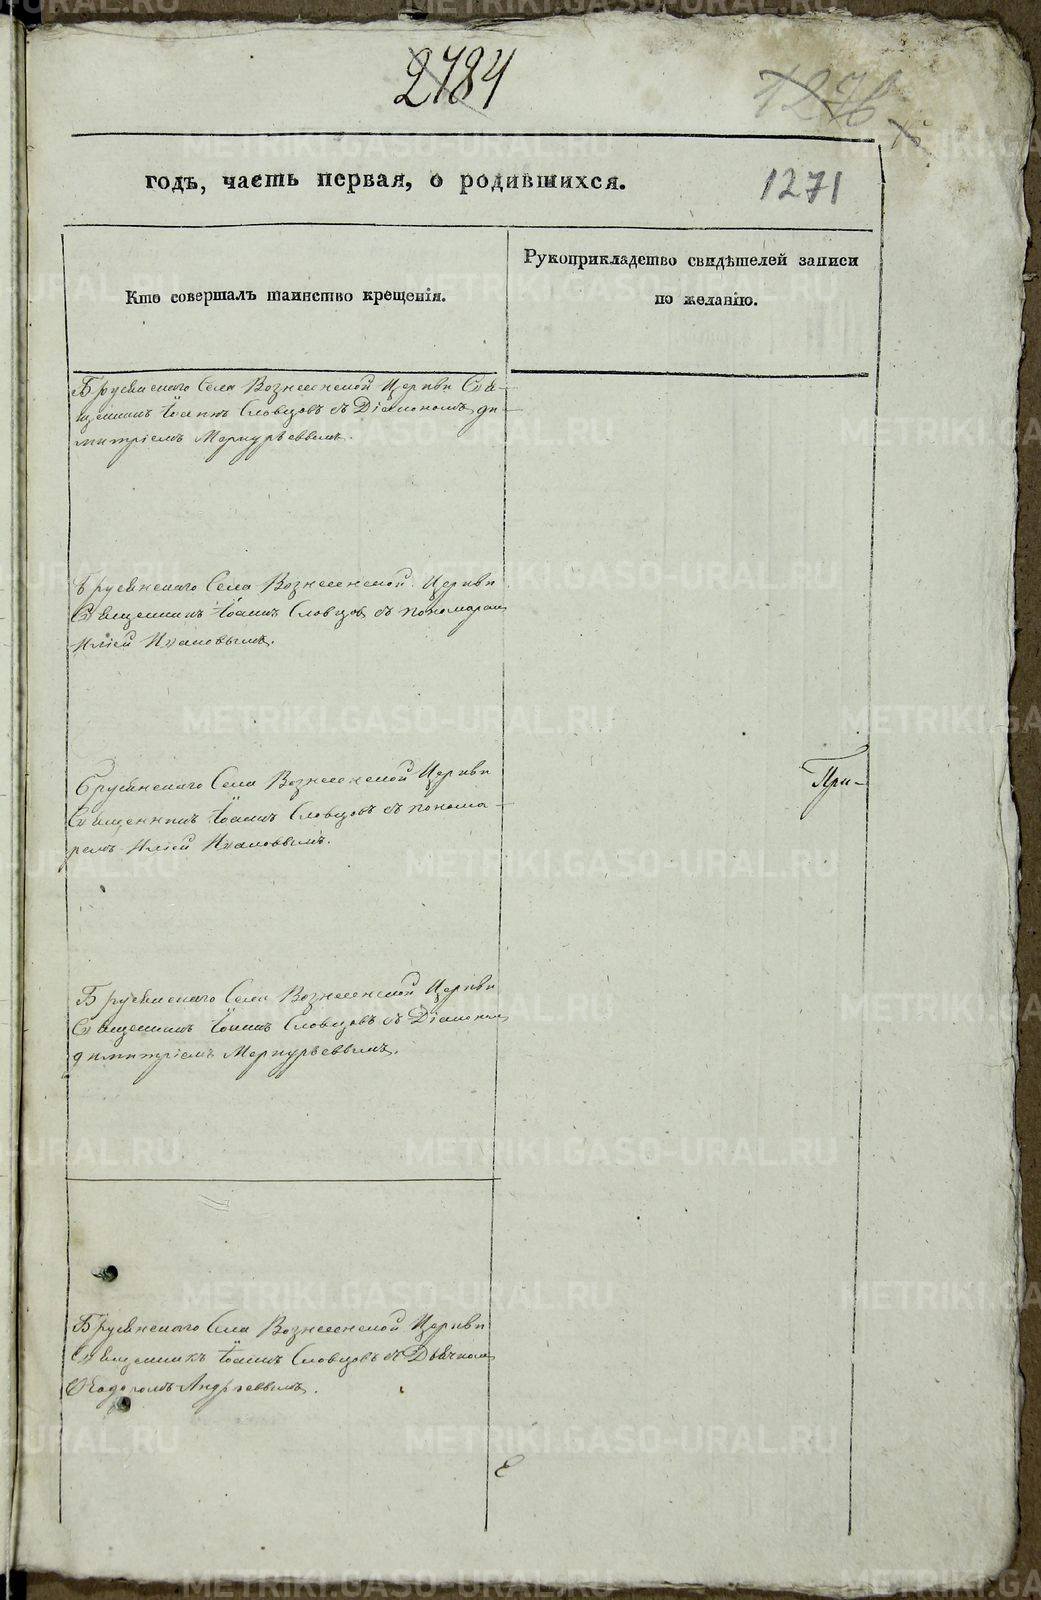 2784
1276
1271
годъ, часть первая, о родившихся.
Кто совершалъ таинство крещенія.
Рукоприкладство свидѣтелей записи
по желанію.
Брусянскаго Села Вознесенской Церкви Свя-
щенникъ Іоаннъ Словцовъ съ Діакономъ Ди-
митріемъ Меркурьевымъ.
Брусянскаго Села Вознесенской Церкви
Священникъ Іоаннъ Словцовъ съ пономаремъ
Иліей Ивановымъ.
Брусянскаго Села Вознесенской Церкви
Священникъ Іоаннъ Словцовъ съ понома-
ремъ Иліей Ивановымъ.
При-
Брусянскаго Села Вознесенской Церкви
Священникъ Іоаннъ Словцовъ съ Діакономъ
Димитріемъ Меркурьевымъ.
Брусянскаго Села Вознесенской Церкви
Священникъ Іоаннъ Словцовъ съ Дьячкомъ
Ѳеодоромъ Андреевымъ.
METRIKI.GASO-URAL.RU